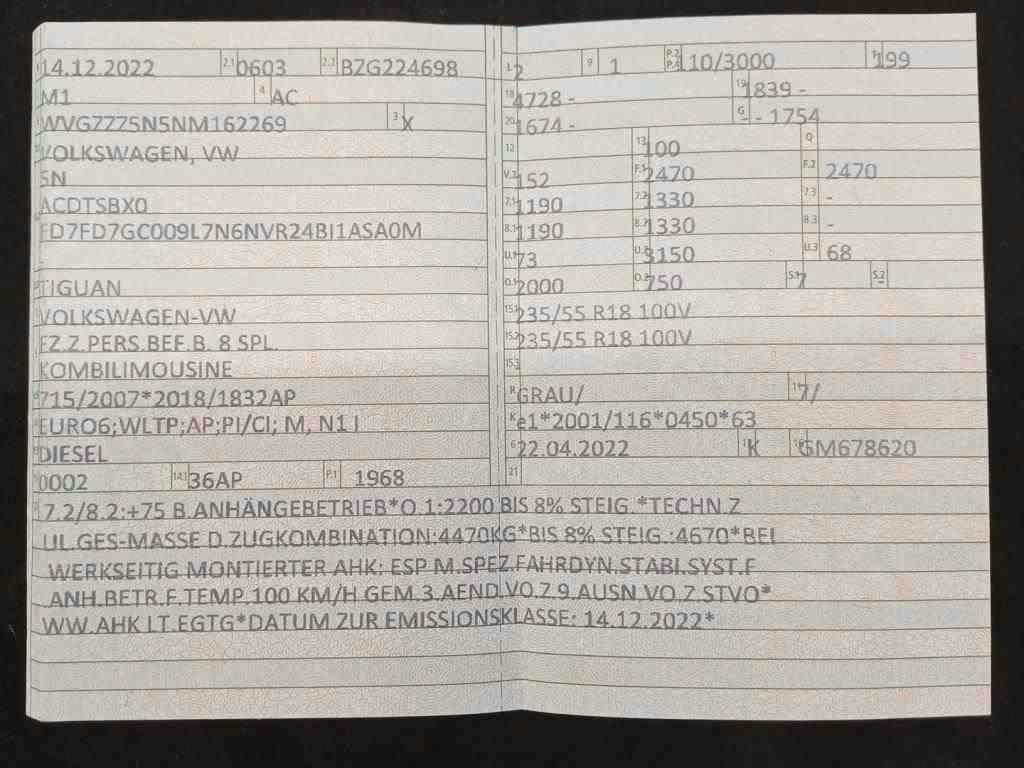 14.12.2022 2.1 0603 2.2 BZG224698
M1 4 AC
WVGZZZ5N5NM162269 3 X
VOLKSWAGEN, VW
5N
ACDTSBX0
FD7FD7GC009L7N6NVR24BI1ASA0M
-
TIGUAN
VOLKSWAGEN-VW
FZ.Z.PERS.BEF.B. 8 SPL.
KOMBILIMOUSINE
715/2007*2018/1832AP
EURO6;WLTP;AP;PI/CI; M, N1 I
DIESEL
0002 36AP P.1 1968
L 2 9 1 P.2 P.4 110/3000 T 199
18 4728 - 19 1839 -
20 1674 - G - 1754
12 13 100 Q
V.7 152 F.1 2470 F.2 2470
7.1 1190 7.2 1330 7.3 -
8.1 1190 8.2 1330 8.3 -
U.1 73 U.2 3150 U.3 68
O.1 2000 O.2 750 S.1 7 S.2 -
15.1 235/55 R18 100V
15.2 235/55 R18 100V
15.3
R GRAU/ 11 7/
K e1*2001/116*0450*63
6 22.04.2022 17 K 16 GM678620
21
7.2/8.2:+75 B.ANHÄNGEBETRIEB*O.1:2200 BIS 8% STEIG.*TECHN.Z
UL.GES-MASSE D.ZUGKOMBINATION:4470KG*BIS 8% STEIG.:4670*BEI
WERKSEITIG MONTIERTER AHK: ESP M.SPEZ.FAHRDYN.STABI.SYST.F
ANH.BETR.F.TEMP.100 KM/H GEM.3.AEND.VO.Z.9.AUSN.VO.Z.STVO*
WW.AHK LT.EGTG*DATUM ZUR EMISSIONSKLASSE: 14.12.2022*